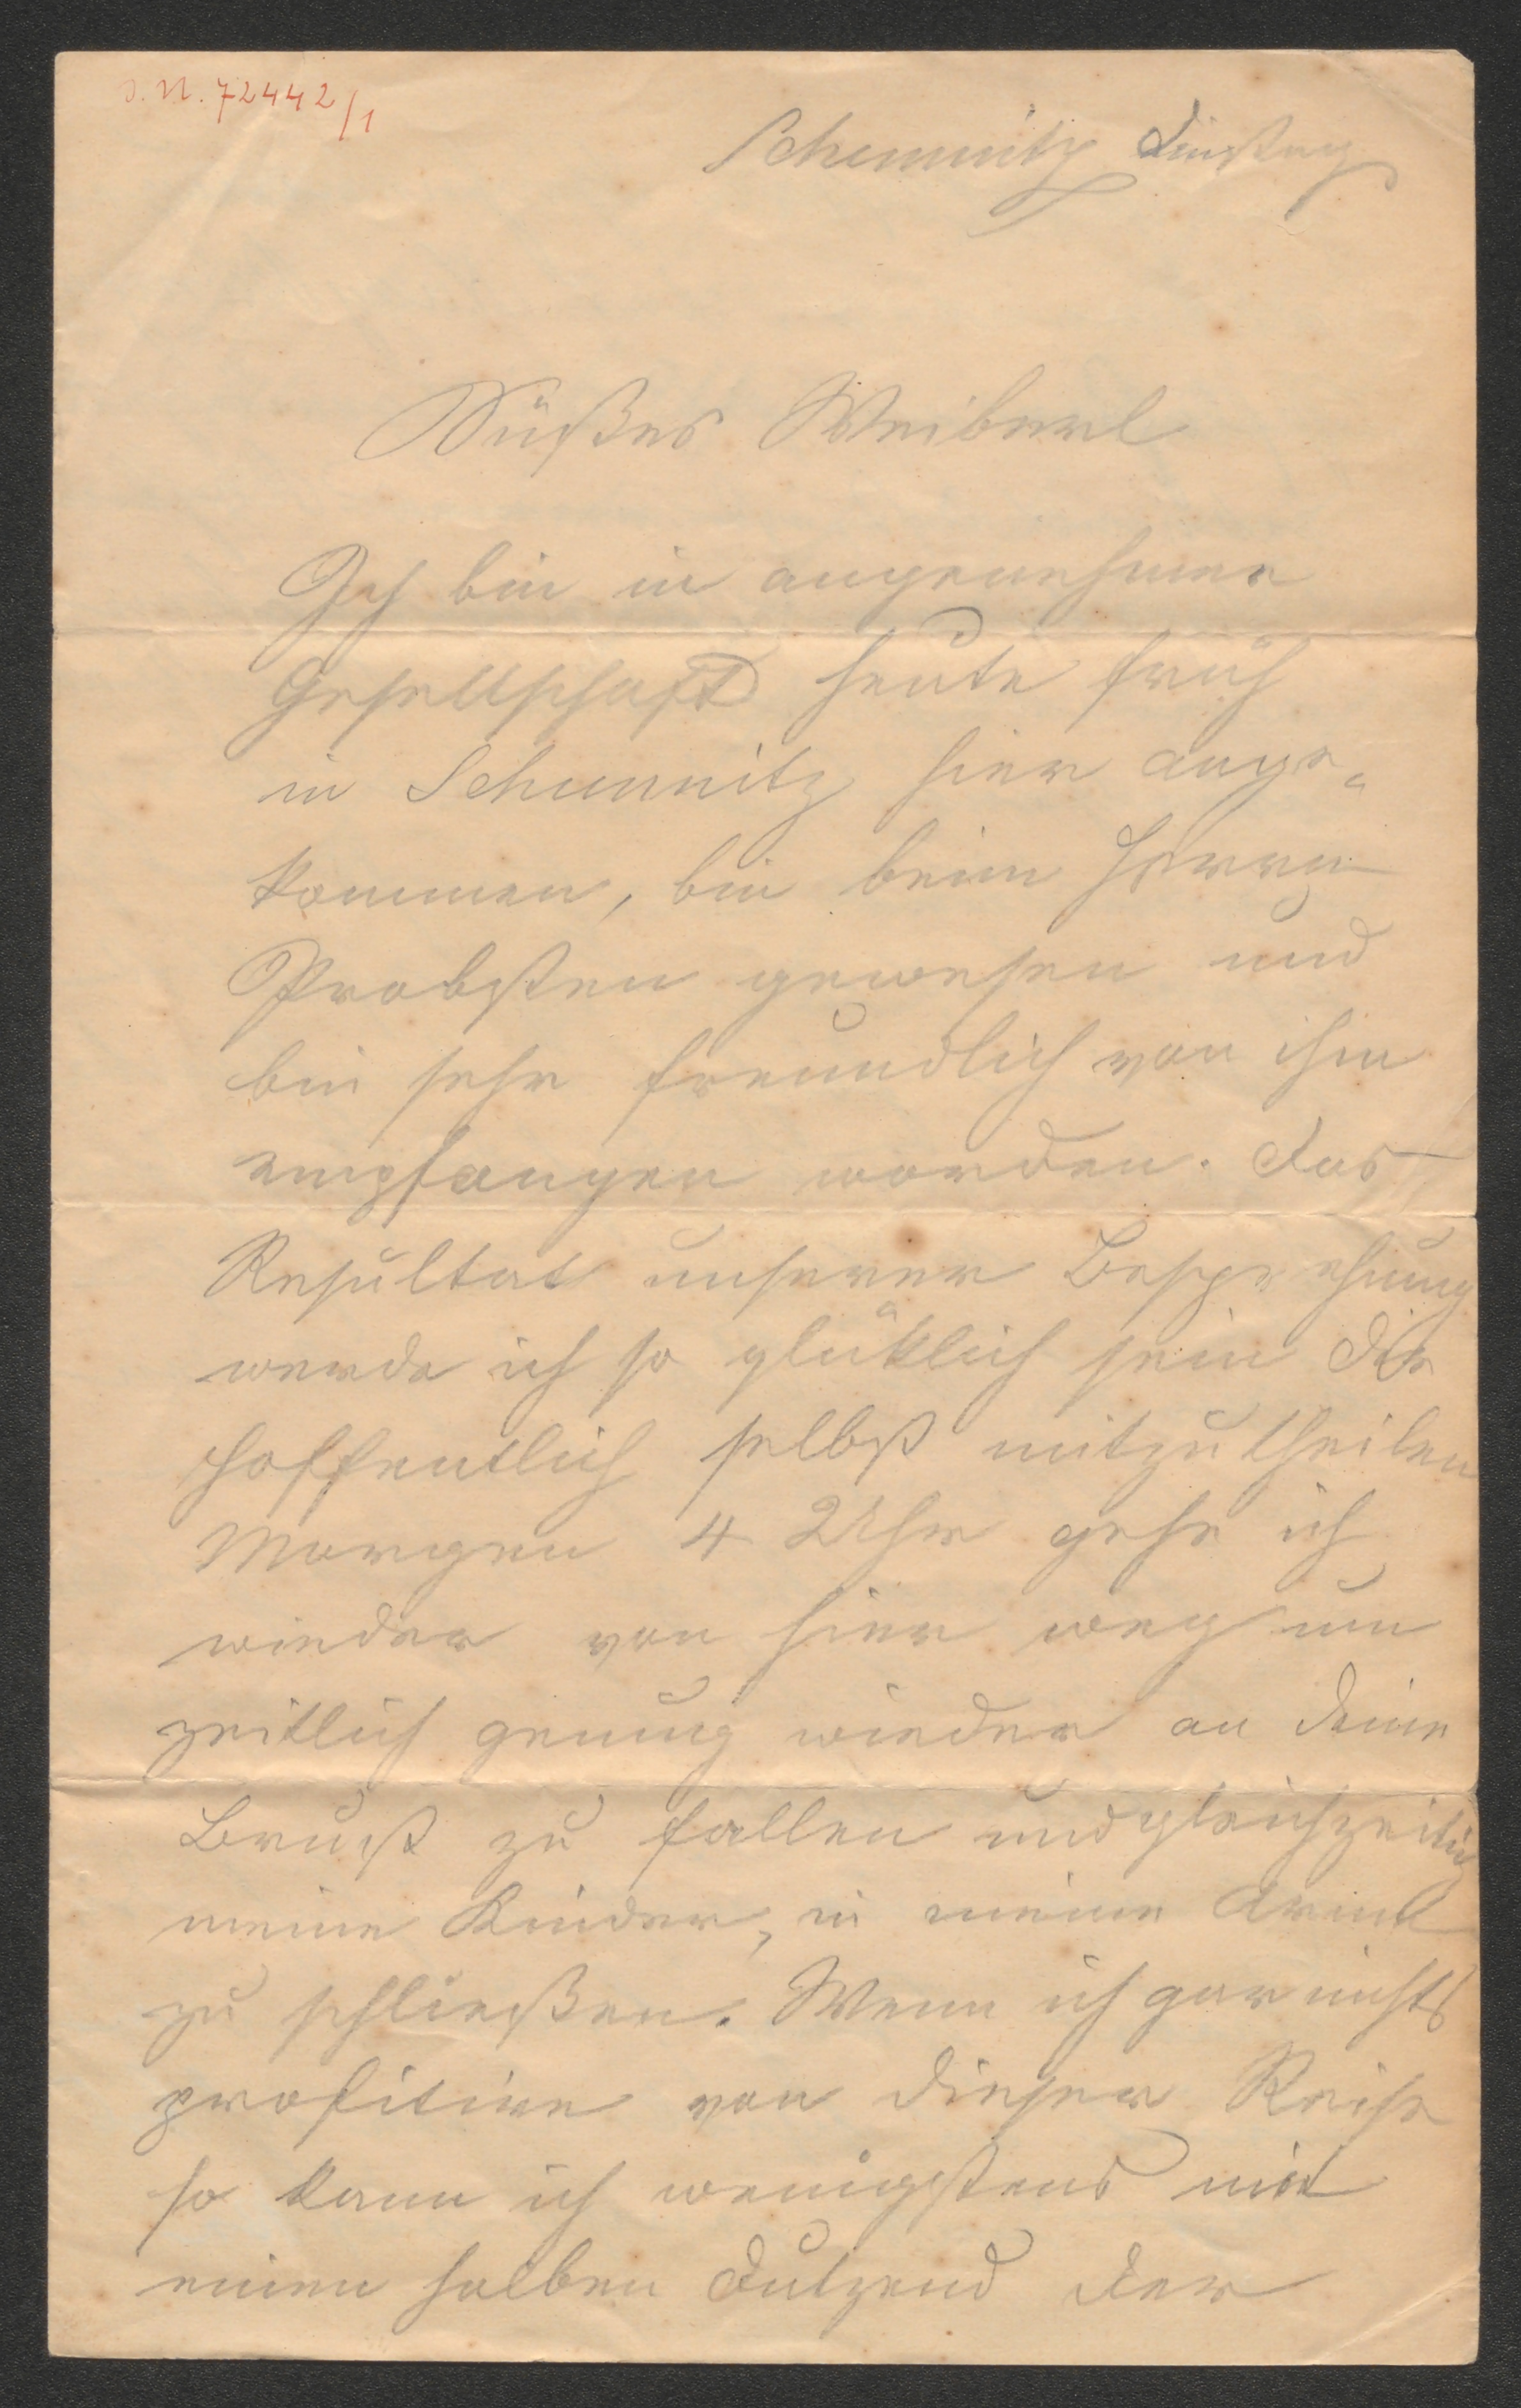 J.N. 72442/1
Schemnitz Dinstag
Süßes Weiberl
Ich bin in angenehmer
Gesellschaft heute früh
in Schemnitz hier ange„
kommen, bin beim Herrn
Probsten gewesen und
bin sehr freundlich von ihm
empfangen worden. Das
Resultat unserer Besprehung
werde ich so glüklich sein dir
hoffentlich selbst mitzutheilen
Morgen 4 Uhr gehe ich
wieder von hier weg um
zeitlich genug wieder an deine
Brust zu fallen und gleichzeitig
meine Kinder, in meine Arme
zu schließen. Wenn ich gar nichts
profitire von dieser Reise
so kann ich wenigstens mit
einen halben Dutzend der